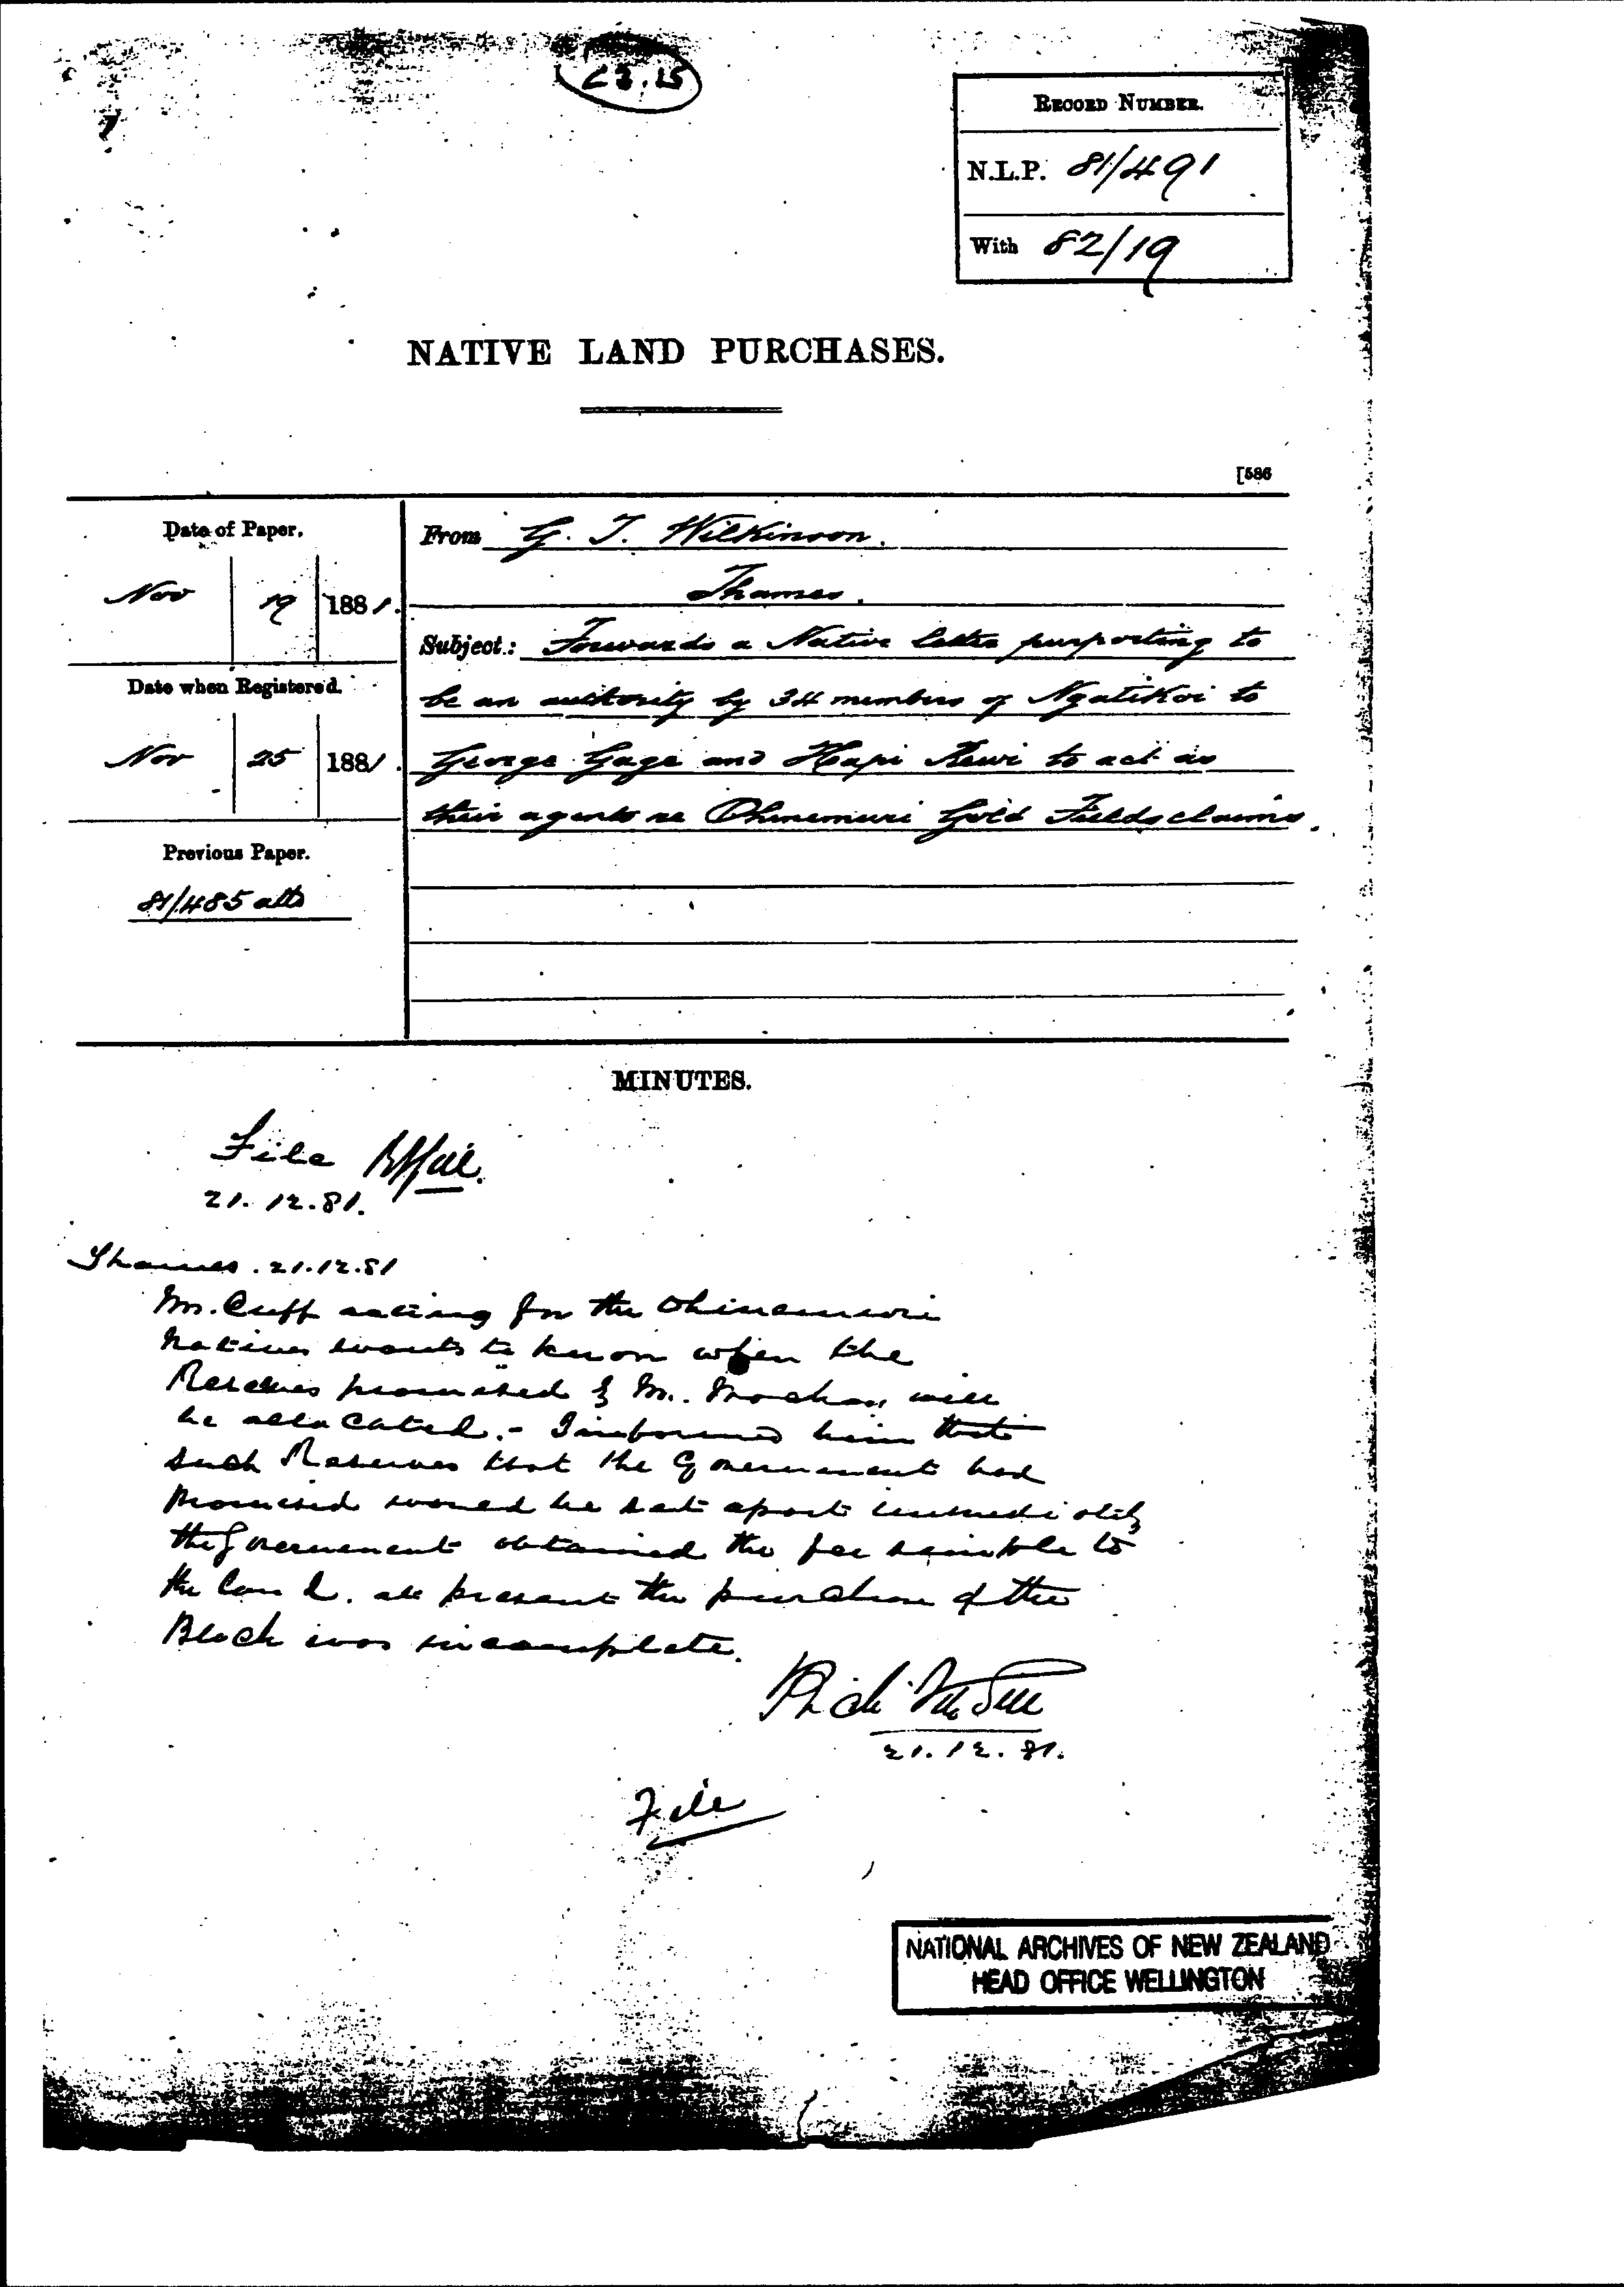 C3.15
RECORD NUMBER.
N.L.P. 81/491
With 82/19
NATIVE LAND PURCHASES.
[586
Date of Paper.
Nov 19 1881.
Date when Registered.
Nov 25 1881.
Previous Paper.
81/485 atts
From G. T. Wilkinson.
Thames.
Subject: Forwards a Native letter purporting to
be an authority by 34 members of Ngatikoi to
George Gage and Hapi Rewi to act as
their agents re Ohinemuri Gold Fields claims.
MINUTES.
File
21.12.81.
Thames. 21.12.81
Mr. Cuff acting for the Ohinemuri
Natives wants to know when the
Reserves promised by Mr. will
be allocated. - I informed him that
such Reserves that the Government had
promised would be set apart immediately
the Government obtained the fee simple to
the land. at present the purchase of the
Block was incomplete.
21.12.81.
File
NATIONAL ARCHIVES OF NEW ZEALAND
HEAD OFFICE WELLINGTON